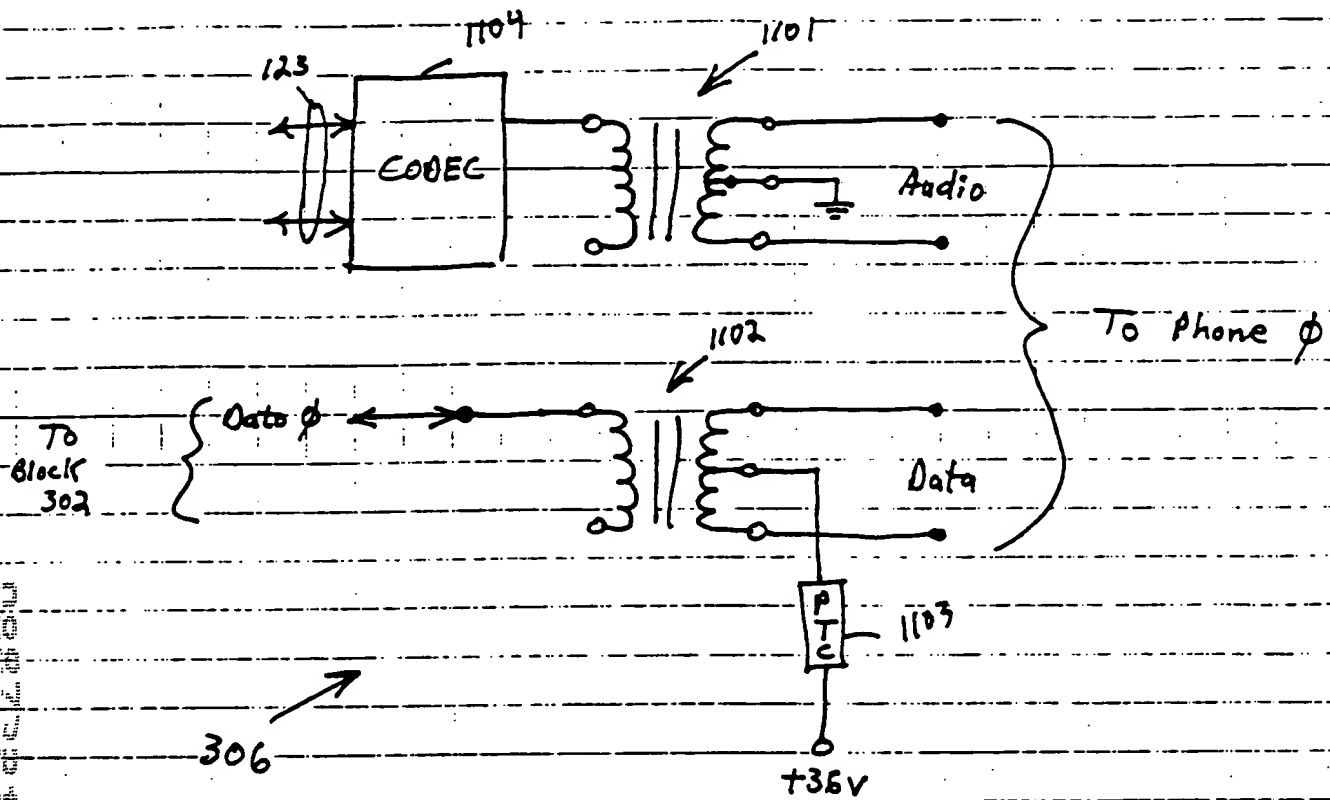 1104
1101
123
CODEC
Audio
To Phone φ
1102
To
Block
302
Data φ
Data
PTC
1103
306
+36V